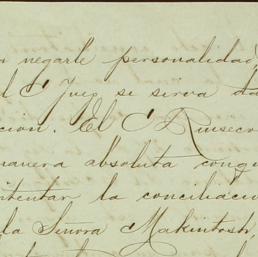 negarle personalidad
el C Juez se sirva da
cion. El C Rinseco
manera absoluta conqu
intentar la conciliacio
la Señora Makintosh,